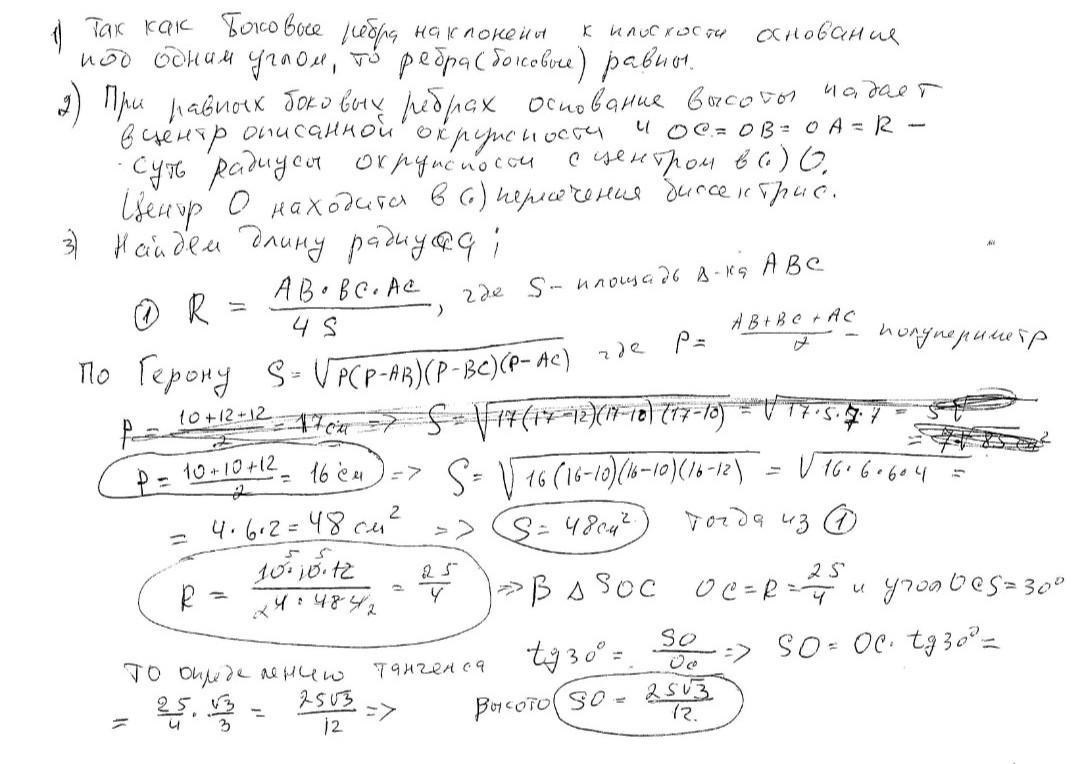 1) Так как боковые ребра наклонены к плоскости основание
под одним углом, то ребра (боковые) равны.
2) При равных боковых ребрах основание высоты падает
в центр описанной окружности и OC = OB = OA = R –
суть радиусы окружности с центром в (·) О.
Центр О находится в (·) пересечения биссектрис.
3) Найдем длину радиуса;
① R = AB·BC·AC / 4S, где S – площадь Δ-ка ABC
По Герону S = √P(P-AB)(P-BC)(P-AC) где P = AB+BC+AC / 2 – полупериметр
P = 10+12+12 / 2 = 17см => S = √17(17-12)(17-10)(17-10) = √17·5·7·7 =
P = 10+10+12 / 2 = 16 см => S = √16(16-10)(16-10)(16-12) = √16·6·6·4 =
= 4·6·2 = 48 см² => S = 48см² тогда из ①
R = 10·10·12 / 4·48 = 25/4 => В Δ SOC OC = R = 25/4 и угол OCS = 30°
По определению тангенса tg30° = SO/OC => SO = OC · tg30° =
= 25/4 · √3/3 = 25√3/12 => Высота SO = 25√3/12.